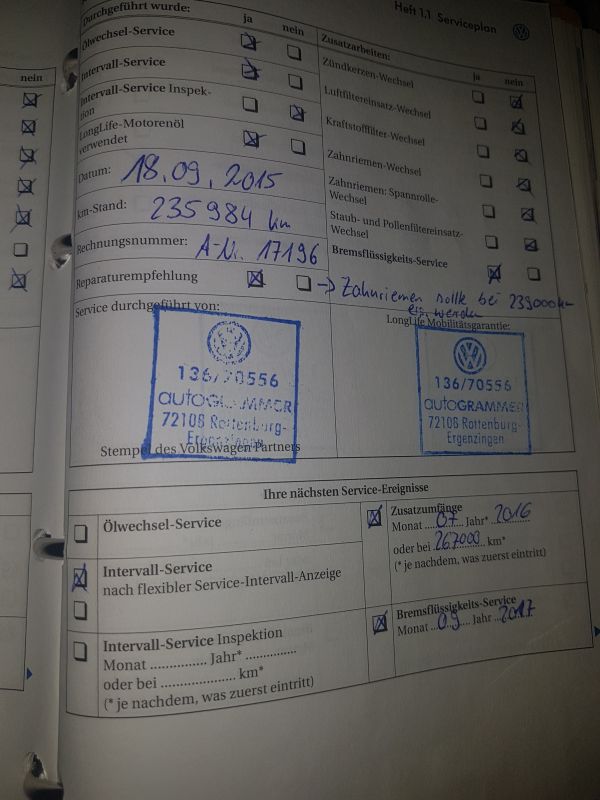 Heft 1.1 Serviceplan
nein
Durchgeführt wurde:
ja
nein
Ölwechsel-Service
Intervall-Service
Intervall-Service Inspek-
tion
LongLife-Motorenöl
verwendet
Zusatzarbeiten:
ja
nein
Zündkerzen-Wechsel
Luftfiltereinsatz-Wechsel
Kraftstofffilter-Wechsel
Zahnriemen-Wechsel
Zahnriemen: Spannrolle-
Wechsel
Staub- und Pollenfiltereinsatz-
Wechsel
Bremsflüssigkeits-Service
Datum: 18.09.2015
km-Stand: 235984 km
Rechnungsnummer: A-Nr. 17196
Reparaturempfehlung
-> Zahnriemen sollte bei
werden
Service durchgeführt von:
136/70556
autoGRAMMER
72108 Rottenburg-
Ergenzingen
Stempel des Volkswagen Partners
LongLife Mobilitätsgarantie:
136/70556
autoGRAMMER
72108 Rottenburg-
Ergenzingen
Ihre nächsten Service-Ereignisse
Ölwechsel-Service
Intervall-Service
nach flexibler Service-Intervall-Anzeige
Intervall-Service Inspektion
Monat .............. Jahr* ..............
oder bei .................... km*
(* je nachdem, was zuerst eintritt)
Zusatzumfänge
Monat 07 Jahr* 2016
oder bei 267000 km*
(* je nachdem, was zuerst eintritt)
Bremsflüssigkeits-Service
Monat 09 Jahr 2017